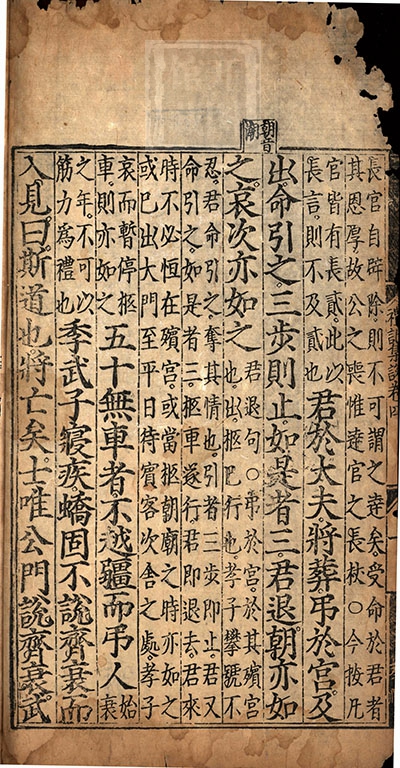 朝音
潮
長官自辟除則不可謂之達矣受命於君者
其恩厚故公之喪惟達官之長杖○今按凡
官皆有長貳此以
長言則不及貳也
君於大夫將葬弔於宮及
出命引之三步則止如是者三君退朝亦如
之哀次亦如之
君退句○弔於宮於其殯宮
也出柩已行也孝子攀號不
忍君命引之奪其情也引者三步即止君又
命引之如是者三柩車遂行君即退去君來
時不必恒在殯宮或當柩朝廟之時亦如之
或已出大門至平日待賓客次舍之處孝子
哀而暫停柩
車則亦如之
五十無車者不越疆而弔人
始
衰
之年不可以
筋力爲禮也
季武子寢疾蟜固不說齊衰而
入見曰斯道也將亡矣士唯公門說齊衰武